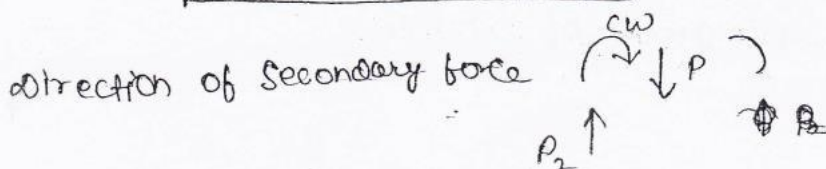 Direction of Secondary force CW ↓ P
P₂ ↑